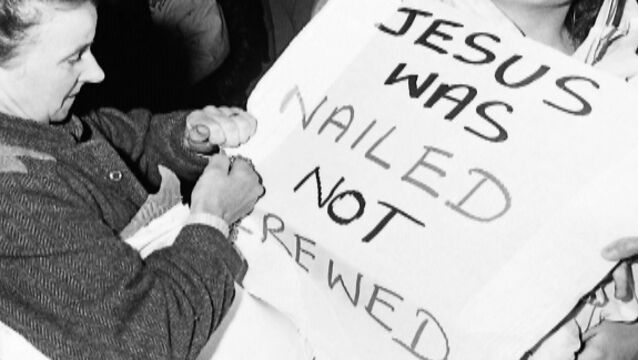 JESUS
WAS
NAILED
NOT
CREWED